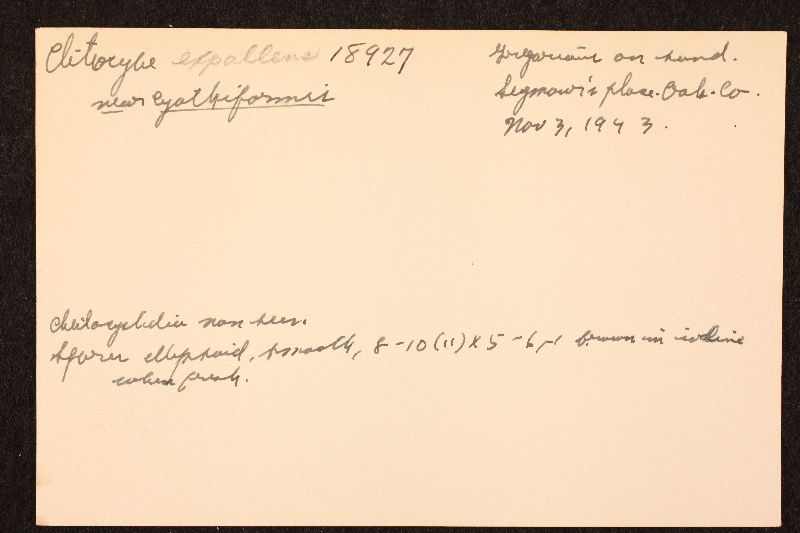 Clitocybe expallens 18927
near cyathiformis
Gregarious on sand.
place. Oak. Co.
Nov 3, 1943.
Cheilocystidia non seen.
Spores ellipsoid, smooth, 8-10(11) X 5-6 µ brown in iodine
when fresh.